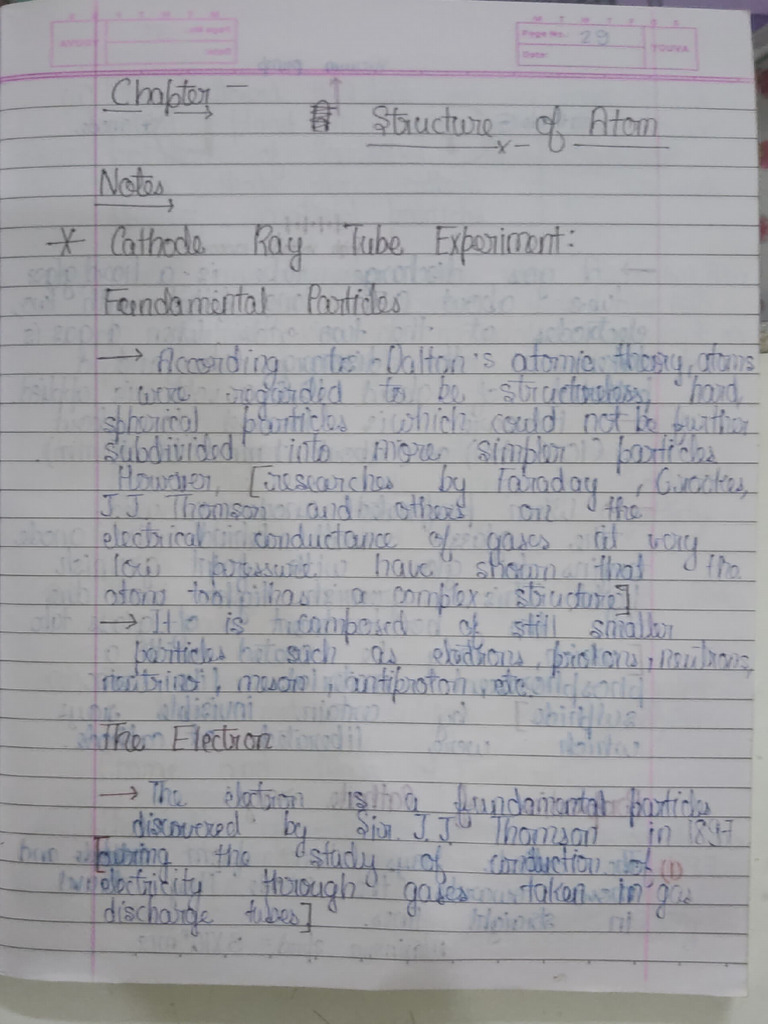 M T W T F S S
Page No.: 29
Date:
YOUVA
Chapter -
Structure of Atom
Notes
* Cathode Ray Tube Experiment:
Fundamental Particles
→ According to Dalton's atomic theory, atoms
were regarded to be structureless, hard,
spherical particles which could not be further
subdivided into more simpler particles
However, [researches by Faraday, Crookes,
J.J. Thomson and others on the
electrical conductance of gases at very
low pressure have shown that the
atom has a complex structure]
→ It is composed of still smaller
particles such as electrons, protons, neutrons,
neutrino, meson, antiproton, etc.
The Electron
→ The electron is a fundamental particles
discovered by Sir J.J. Thomson in 1897
[during the study of conduction of (1)
electricity through gases taken in gas
discharge tubes]